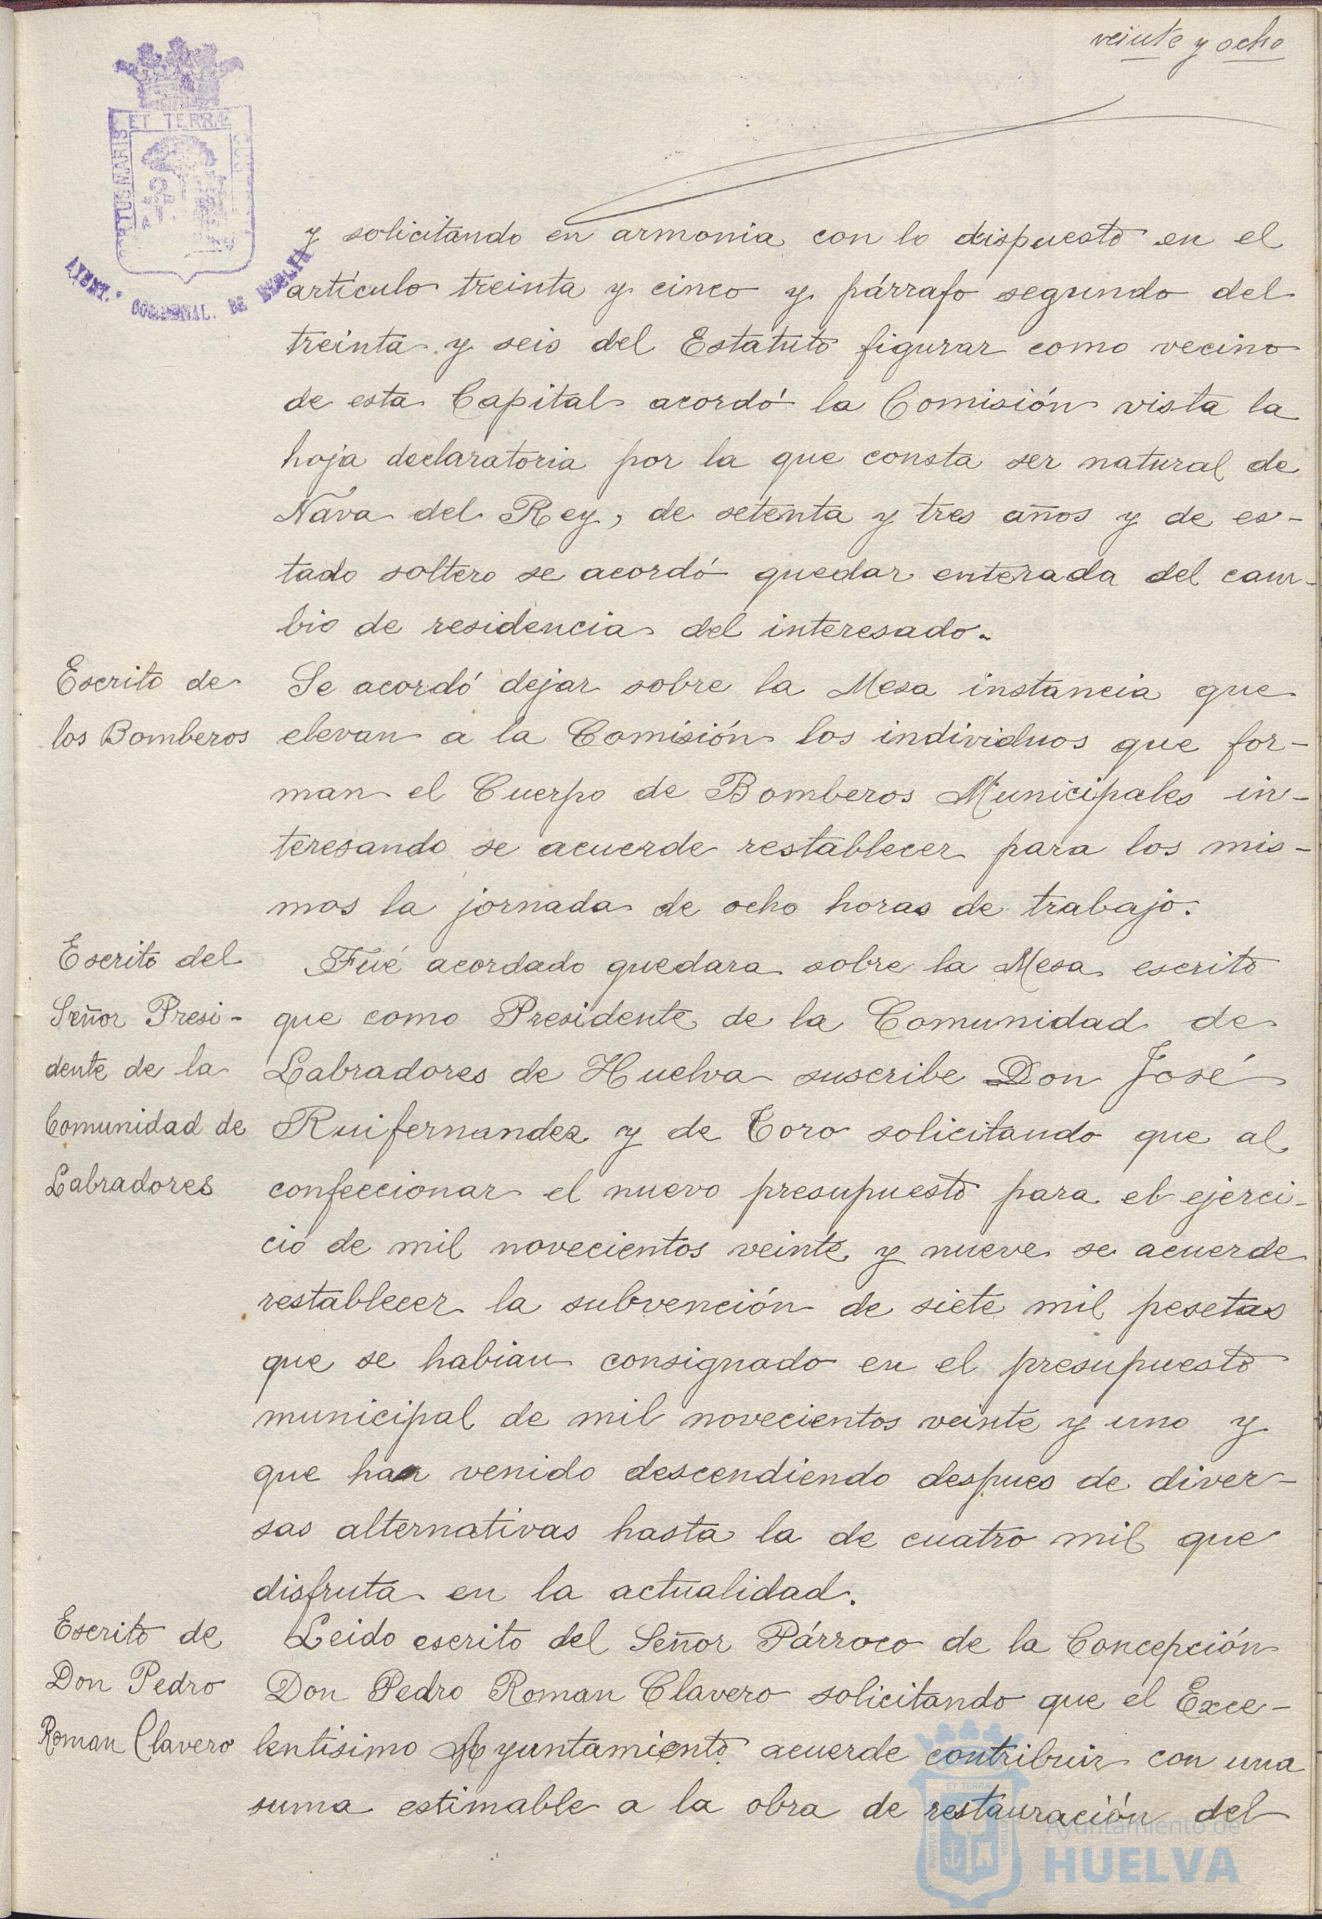 veinte y ocho
ET TERRÆ
y solicitando en armonia con lo dispuesto en el
artículo treinta y cinco y párrafo segundo del
treinta y seis del Estatuto figurar como vecino
de esta Capital acordó la Comisión vista la
hoja declaratoria por la que consta ser natural de
Nava del Rey, de setenta y tres años y de es-
tado soltero se acordó quedar enterada del cam-
bio de residencia del interesado.
Escrito de
los Bomberos
Se acordó dejar sobre la Mesa instancia que
elevan a la Comisión los individuos que for-
man el Cuerpo de Bomberos Municipales in-
teresando se acuerde restablecer para los mis-
mos la jornada de ocho horas de trabajo.
Escrito del
Señor Presi-
dente de la
Comunidad de
Labradores
Fué acordado quedara sobre la Mesa escrito
que como Presidente de la Comunidad de
Labradores de Huelva suscribe Don José
Ruifernandez y de Toro solicitando que al
confeccionar el nuevo presupuesto para el ejerci-
cio de mil novecientos veinte y nueve se acuerde
restablecer la subvención de siete mil pesetas
que se habian consignado en el presupuesto
municipal de mil novecientos veinte y uno y
que han venido descendiendo despues de diver-
sas alternativas hasta la de cuatro mil que
disfruta en la actualidad.
Escrito de
Don Pedro
Roman Clavero
Leido escrito del Señor Párroco de la Concepción
Don Pedro Roman Clavero solicitando que el Exce-
lentisimo Ayuntamiento acuerde contribuir con una
suma estimable a la obra de restauración del
Ayuntamiento de
HUELVA